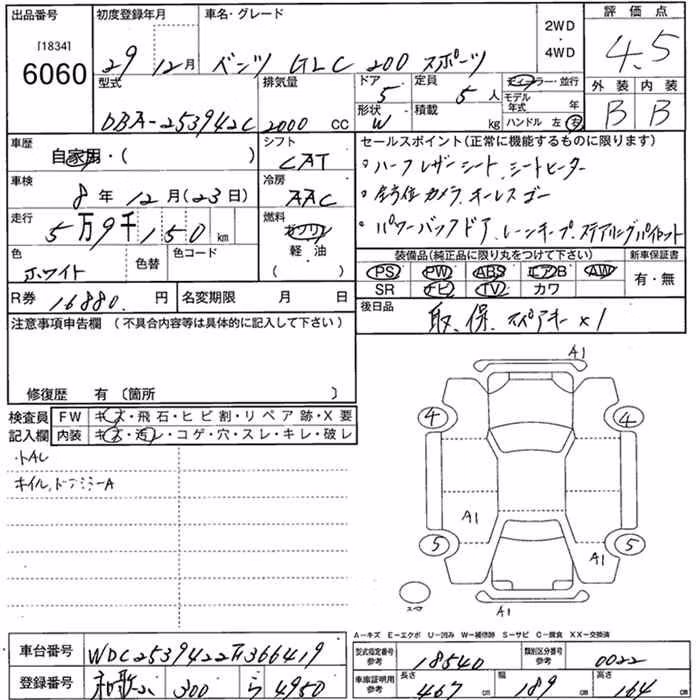 出品番号 初度登録年月 車名・グレード 2WD・4WD 評価点
[1834]
6060 29 12月 ベンツ GLC 200 スポーツ 4.5
型式 排気量 ドア 定員 ディーラー・並行 外装 内装
DBA-253942C 2000 CC 5 5人 モデル年式 年 B B
形状 W 積載 kg ハンドル 左 右
車歴 シフト セールスポイント(正常に機能するものに限ります)
自家用・( ) CAT ・ハーフレザーシート、シートヒーター
車検 冷房
8年 12月(23日) AAC ・全方位カメラ、キーレスゴー
走行 燃料
5万9千150km ガソリン ・パワーバックドア、レーンキープ、ステアリングパイロット
色 色替 色コード 軽・油 装備品(純正品に限り丸をつけて下さい) 新車保証書
ホワイト ( ) PS PW ABS エアB AW 有・無
R券 16880円 名変期限 月 日 SR ナビ TV カワ
注意事項申告欄(不具合内容等は具体的に記入して下さい) 後日品 取、保、スペアキーx1
修復歴 有(箇所 )
検査員記入欄 FW キズ・飛石・ヒビ割・リペア跡・X要
内装 キズ・汚レ・コゲ・穴・スレ・キレ・破レ
A1
4 4
A1 A1
5 5
スペア
A1
A-キズ E-エクボ U-凹み W-補修跡 S-サビ C-腐食 XX-交換済
車台番号 型式指定番号参考 18540 類別区分番号参考 0022
登録番号 和歌山 300 ら 4950 車庫証明用参考 長さ 467cm 幅 189cm 高さ 164cm